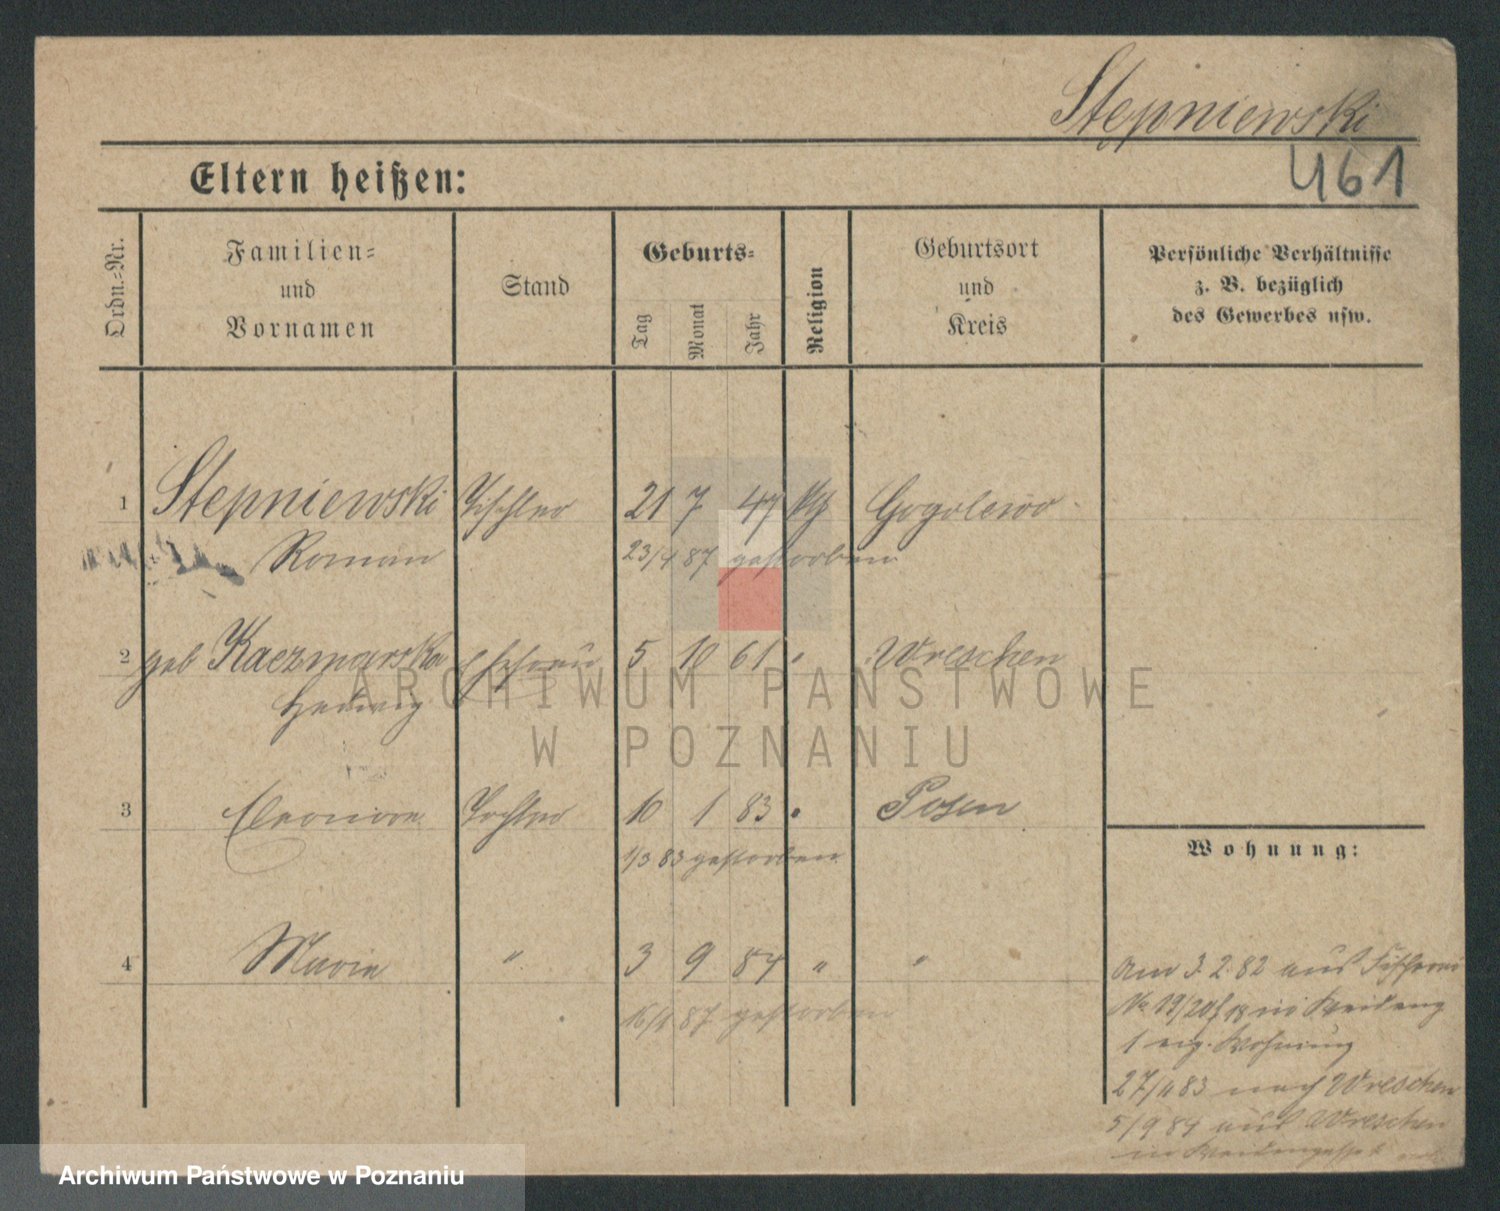 Stepniewski
461
Eltern heißen:
Ordn.-Nr.
Familien-
und
Vornamen
Stand
Geburts-
Tag
Monat
Jahr
Religion
Geburtsort
und
Kreis
Persönliche Verhältnisse
z. B. bezüglich
des Gewerbes usw.
1 Stepniewski Tischler 21 7 47 Gogolewo
Roman 23/4 87 gestorben
2 geb Kaczmarska Ehefrau 5 10 61 " Wreschen
Hedwig
3 Eleonore Tochter 10 1 83 " Posen
1/3 83 gestorben
4 Maria " 3 9 84 " "
16/4 87 gestorben
Wohnung:
Am 3. 2. 82 aus Fischerei
No 19/20
1 eig. Wohnung
27/4 83 nach Wreschen
5/9 84 aus Wreschen
in
ARCHIWUM PAŃSTWOWE
W POZNANIU
Archiwum Państwowe w Poznaniu